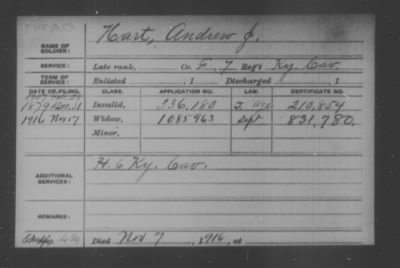 DEAD
NAME OF SOLDIER: Hart, Andrew J.
SERVICE: Late rank, Co. F. 7 Reg't Ky. Cav.
TERM OF SERVICE: Enlisted , 1 Discharged , 1
DATE OF FILING. CLASS. APPLICATION NO. LAW. CERTIFICATE NO.
1907
1879 Invalid, 336,180 210,854
1916 Nov 17 Widow, 1085963 Sept 831,780.
Minor,
ADDITIONAL SERVICES: H. 6 Ky. Cav.
REMARKS:
Died Nov 7, 1916, at